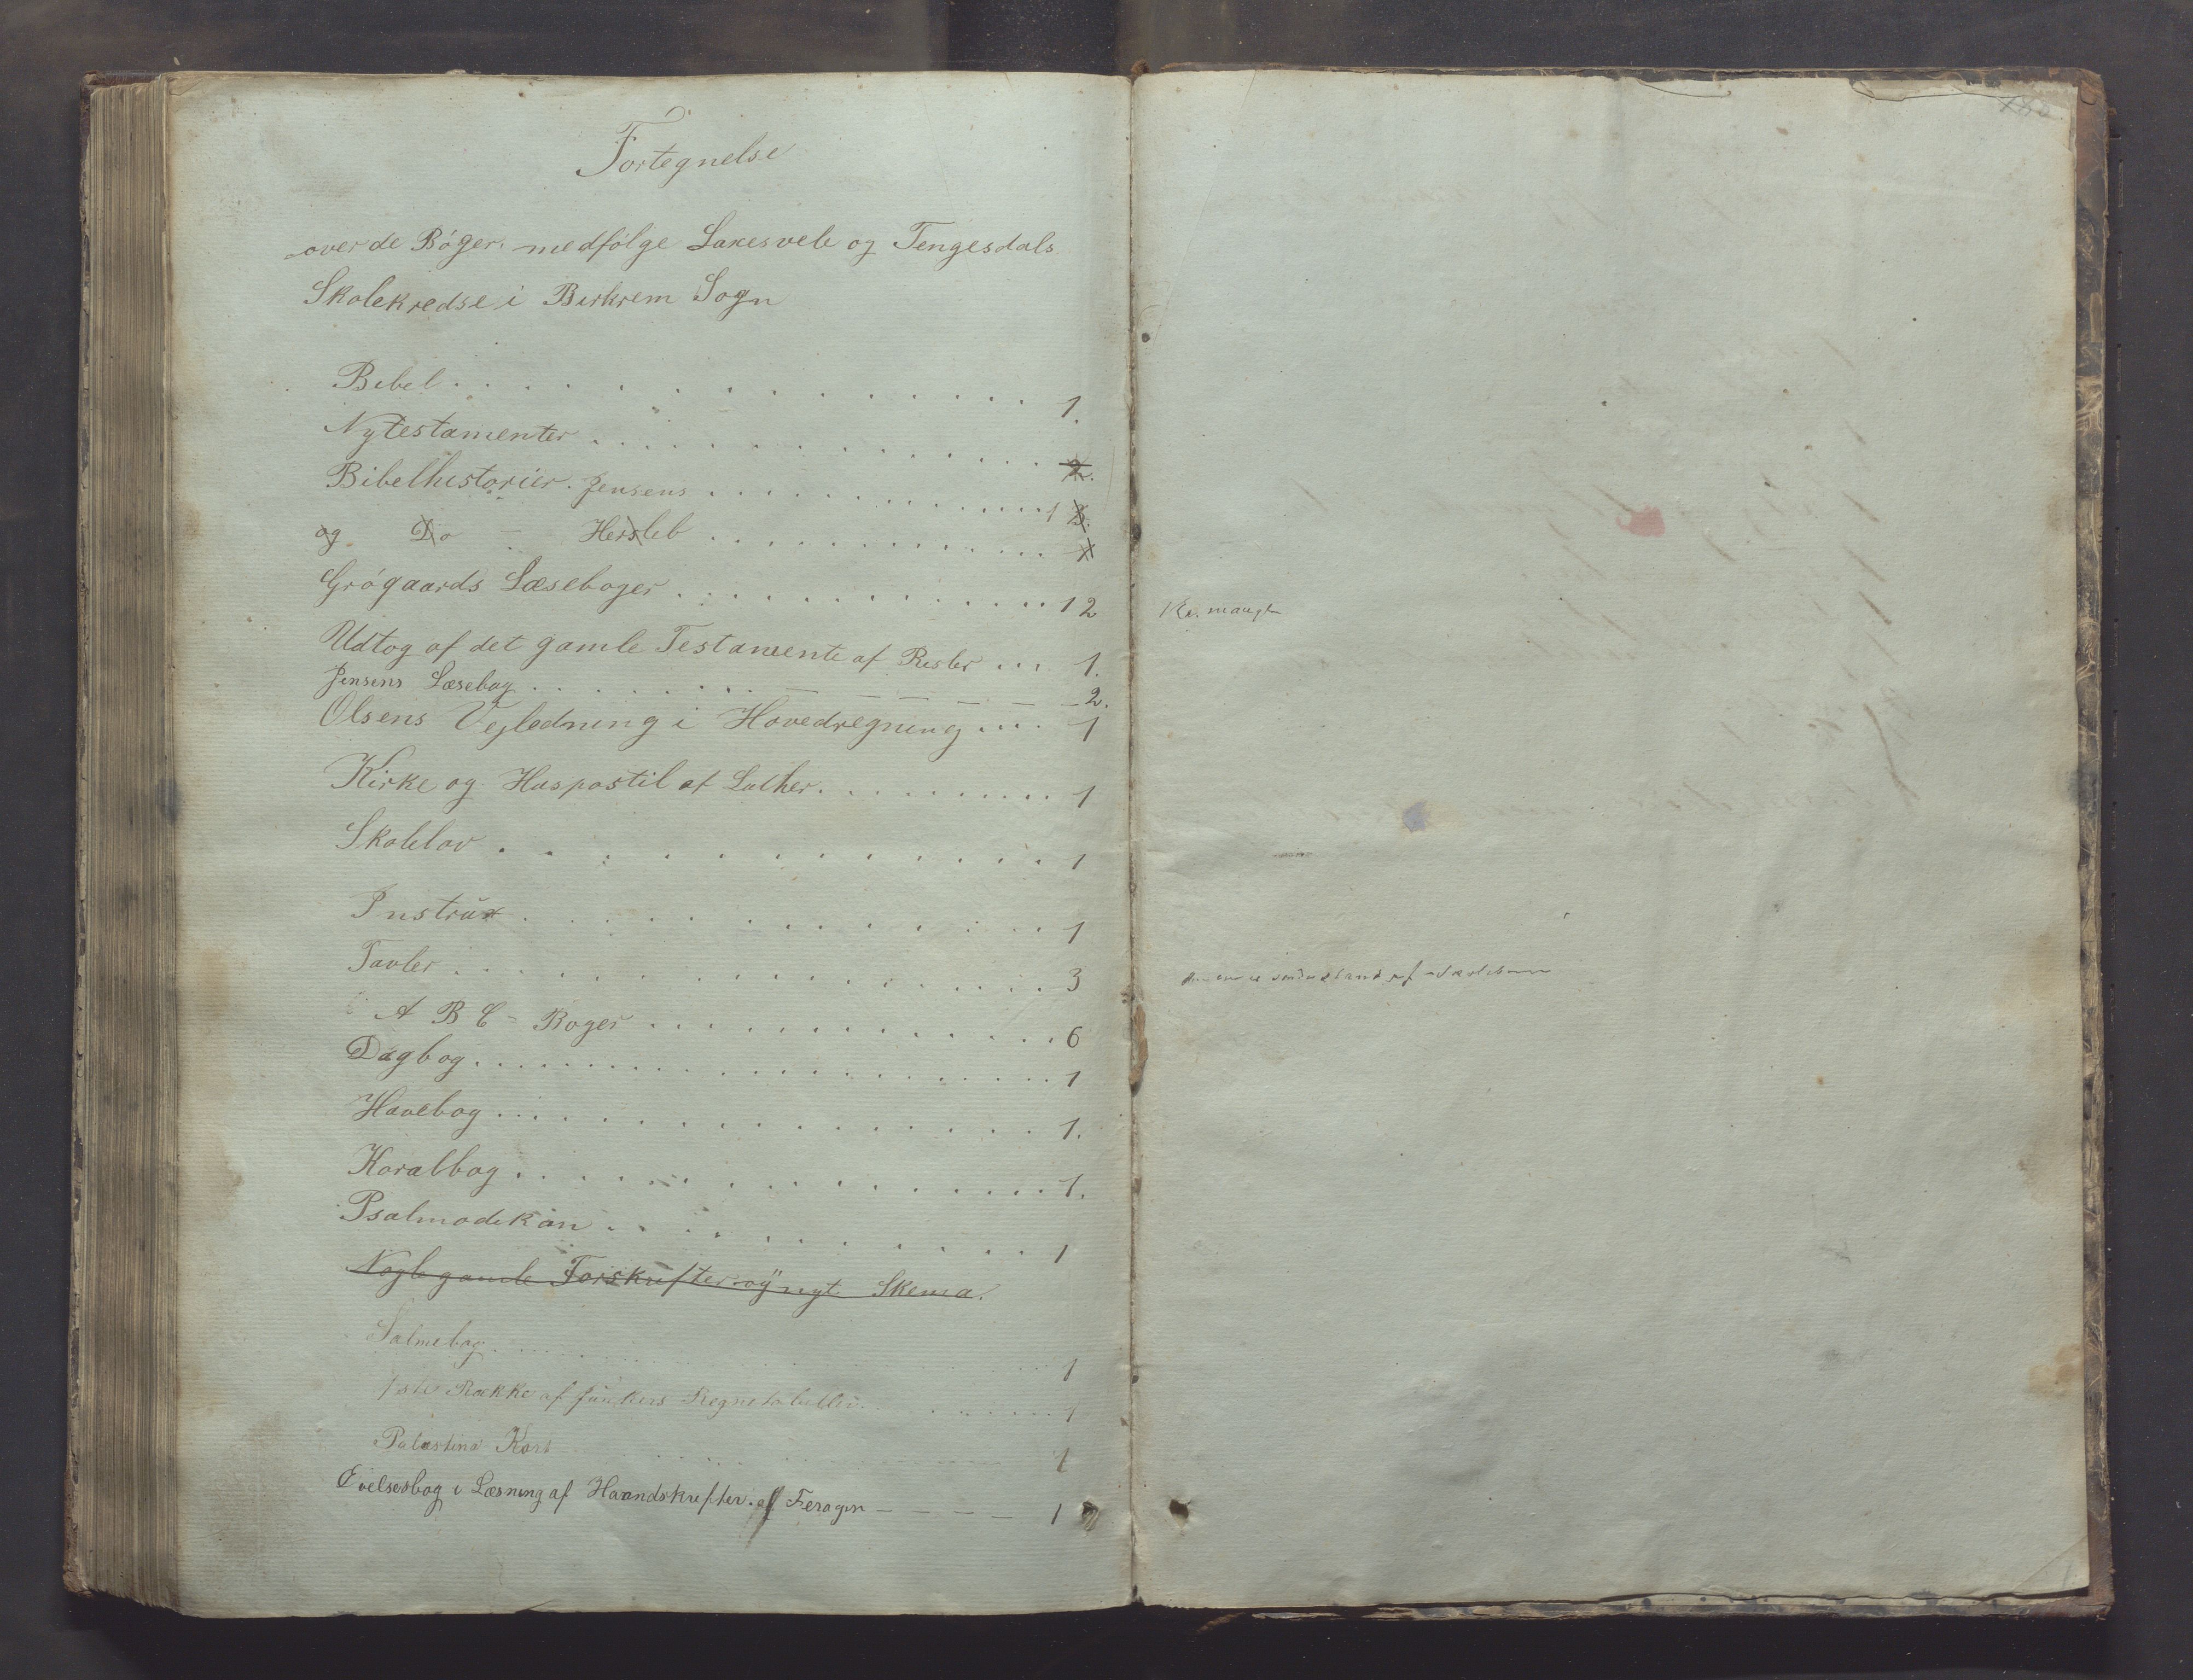 Fortegnelse
over de Bøger. medfølge Laxesvele og Tengesdals
Skolekredse i Birkrem Sogn
Bibel . . . . . . . . . . . . 1.
Nytestamenter . . . . . . . . . . . . 2.
Bibelhistorier. Jensens . . . . . . . . . . . . 1 3.
og Do - Hersleb . . . . . . . . . . . . 1
Grøgaards Læsebøger . . . . . . . . . . . . 12
Udtog af det gamle Testamente af . . . 1.
Jensens Læsebog . . . . . . . . - - - - - - 2.
Olsens Vejledning i Hovedregning . . . . 1
Kirke og Huspostil af Luther. . . . . . . . . . 1
Skolelov . . . . . . . . . . . . 1
Instrux . . . . . . . . . . . . 1
Tavler . . . . . . . . . . . . 3
A B C - Bøger . . . . . . . . . . . . 6
Dagbog . . . . . . . . . . . . 1
Havebog . . . . . . . . . . . . 1.
Koralbog . . . . . . . . . . . . 1.
Psalmodikan . . . . . . . . . . . . 1
Nogle gamle Forskrifter og nyt. Skema.
Salmebog . . . . . . . . . . . . 1
1ste Række af Junkers Regnetabeller . . . . . . . 1
Palæstina Kart . . . . . . . . 1
Øvelsesbog i Læsning af Haandskrifter. af Feragen - - - - 1